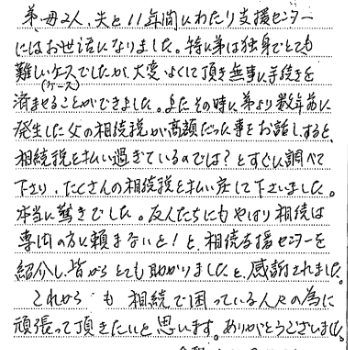 弟、母2人、夫と11年間にわたり支援センター
にはお世話になりました。特に弟は独身でとても
難しいケースでしたが、大変よくして頂き無事に手続きを
(ケース)
済ませることができました。またその時に弟より数年前に
発生した父の相続税が高額だった事をお話しすると、
相続税を払い過ぎているのでは?とすぐに調べて
下さり、たくさんの相続税を払い戻して下さいました。
本当に驚きでした。友人たちにもやはり相続は
専門の方に頼まないと!と、相続支援センターを
紹介し、皆からとても助かりましたと、感謝されました。
これからも相続で困っている人々の為に
頑張って頂きたいと思います。ありがとうございました。